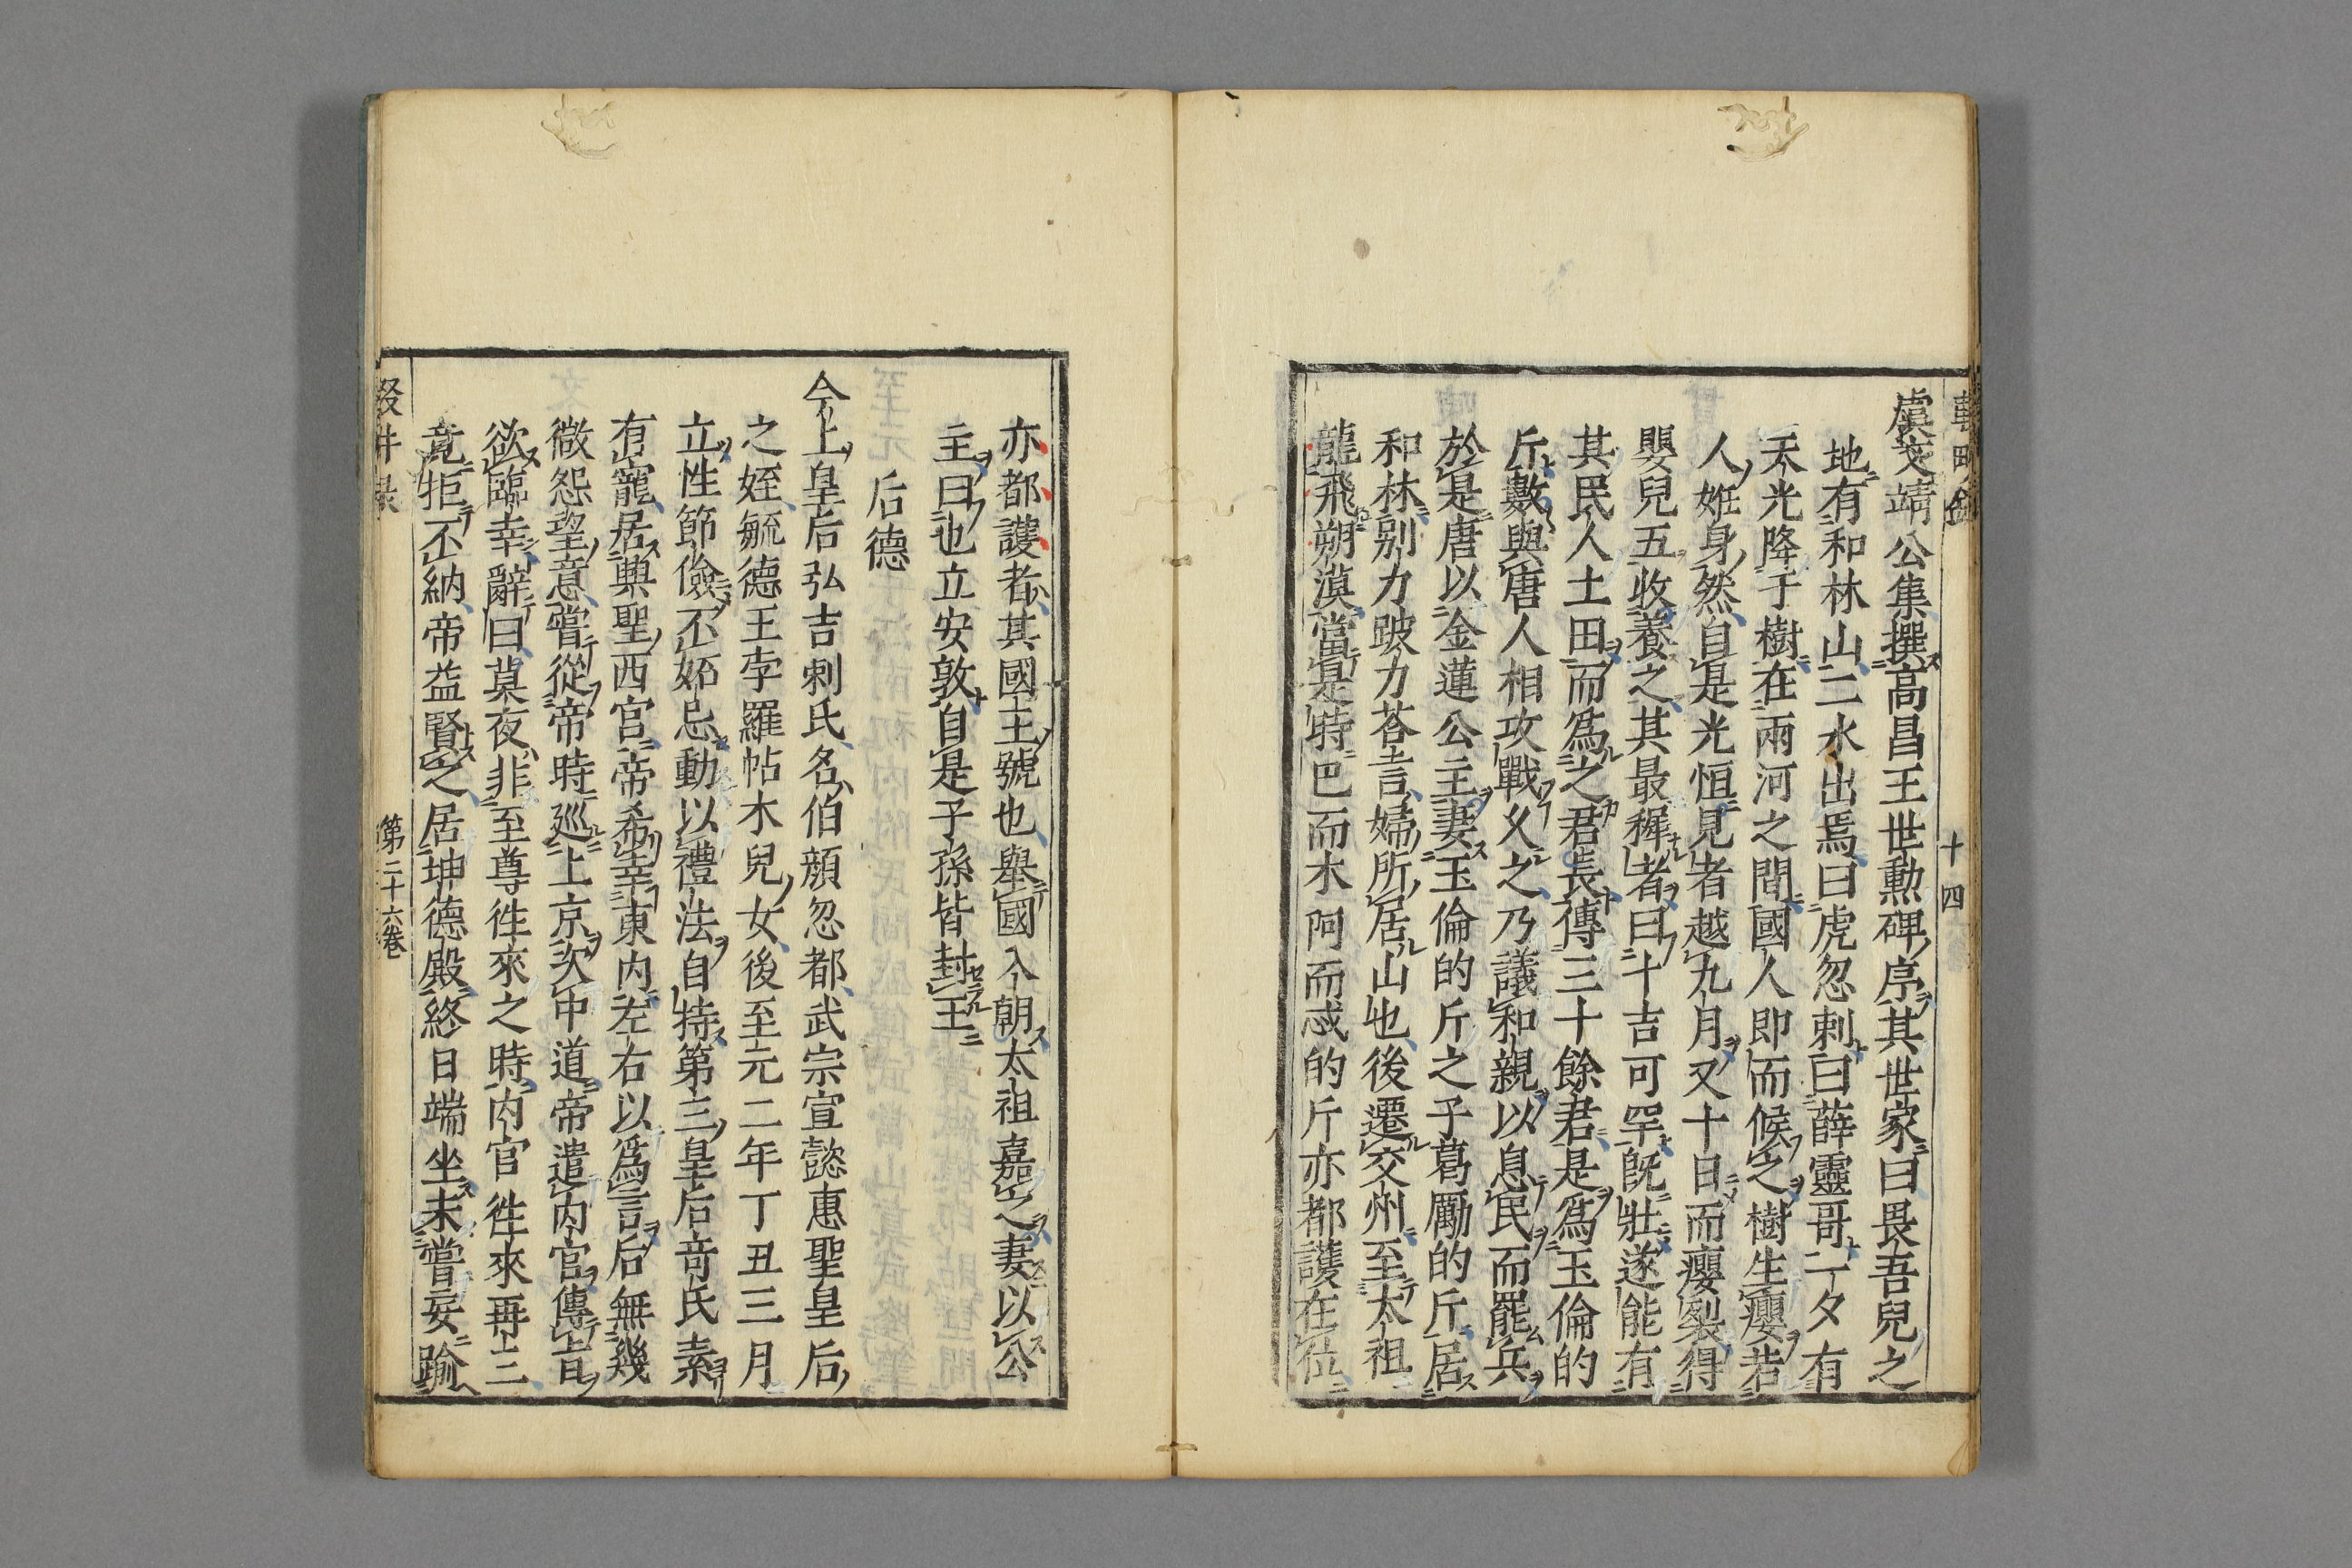 十四
虞文靖公集撰高昌王世勲碑序其世家曰畏吾兒之
地有和林山二水出焉曰虎忽剌曰薛靈哥一夕有
天光降于樹在兩河之間國人即而候之樹生癭若
人姙身然自是光恒見者越九月又十日而癭裂得
嬰兒五收養之其最穉者曰卜吉可罕既壯遂能有
其民人土田而爲之君長傳三十餘君是爲玉倫的
斤數與唐人相攻戰久之乃議和親以息民而罷兵
於是唐以金蓮公主妻玉倫的斤之子葛勵的斤居
和林别力跛力荅言婦所居山也後遷交州至太祖
龍飛朔漠當是時巴而木阿而忒的斤亦都護在位
亦都護者其國主號也舉國入朝太祖嘉之妻以公
主曰也立安敦自是子孫皆封王
后德
今上皇后弘吉剌氏名伯顔忽都武宗宣懿惠聖皇后
之姪毓德王孛羅帖木兒女後至元二年丁丑三月
立性節儉不妬忌動以禮法自持第三皇后奇氏素
有寵居興聖西宮帝希幸東内左右以爲言后無幾
微怨望意嘗從帝時廵上京次中道帝遣内官傳旨
欲臨幸辭曰莫夜非至尊徃來之時内官徃來再三
竟拒不納帝益賢之居坤德殿終日端坐未嘗妄踰
第二十六巻